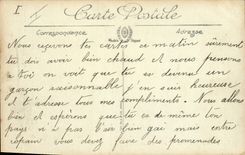 I
Carte Postale
Correspondance
Adresse
Nous recevons tes cartes ce matin sûrement
tu dois avoir bien chaud et nous pensons
a toi on voit que tu es devenu un
garçon raisonnable j'en suis heureuse
et t'adresse tous mes compliments. Nous allons
bien et espérons que tu es de même ton
pays n'a pas l'air bien gai mais entre
copain vous devez faire des promenades